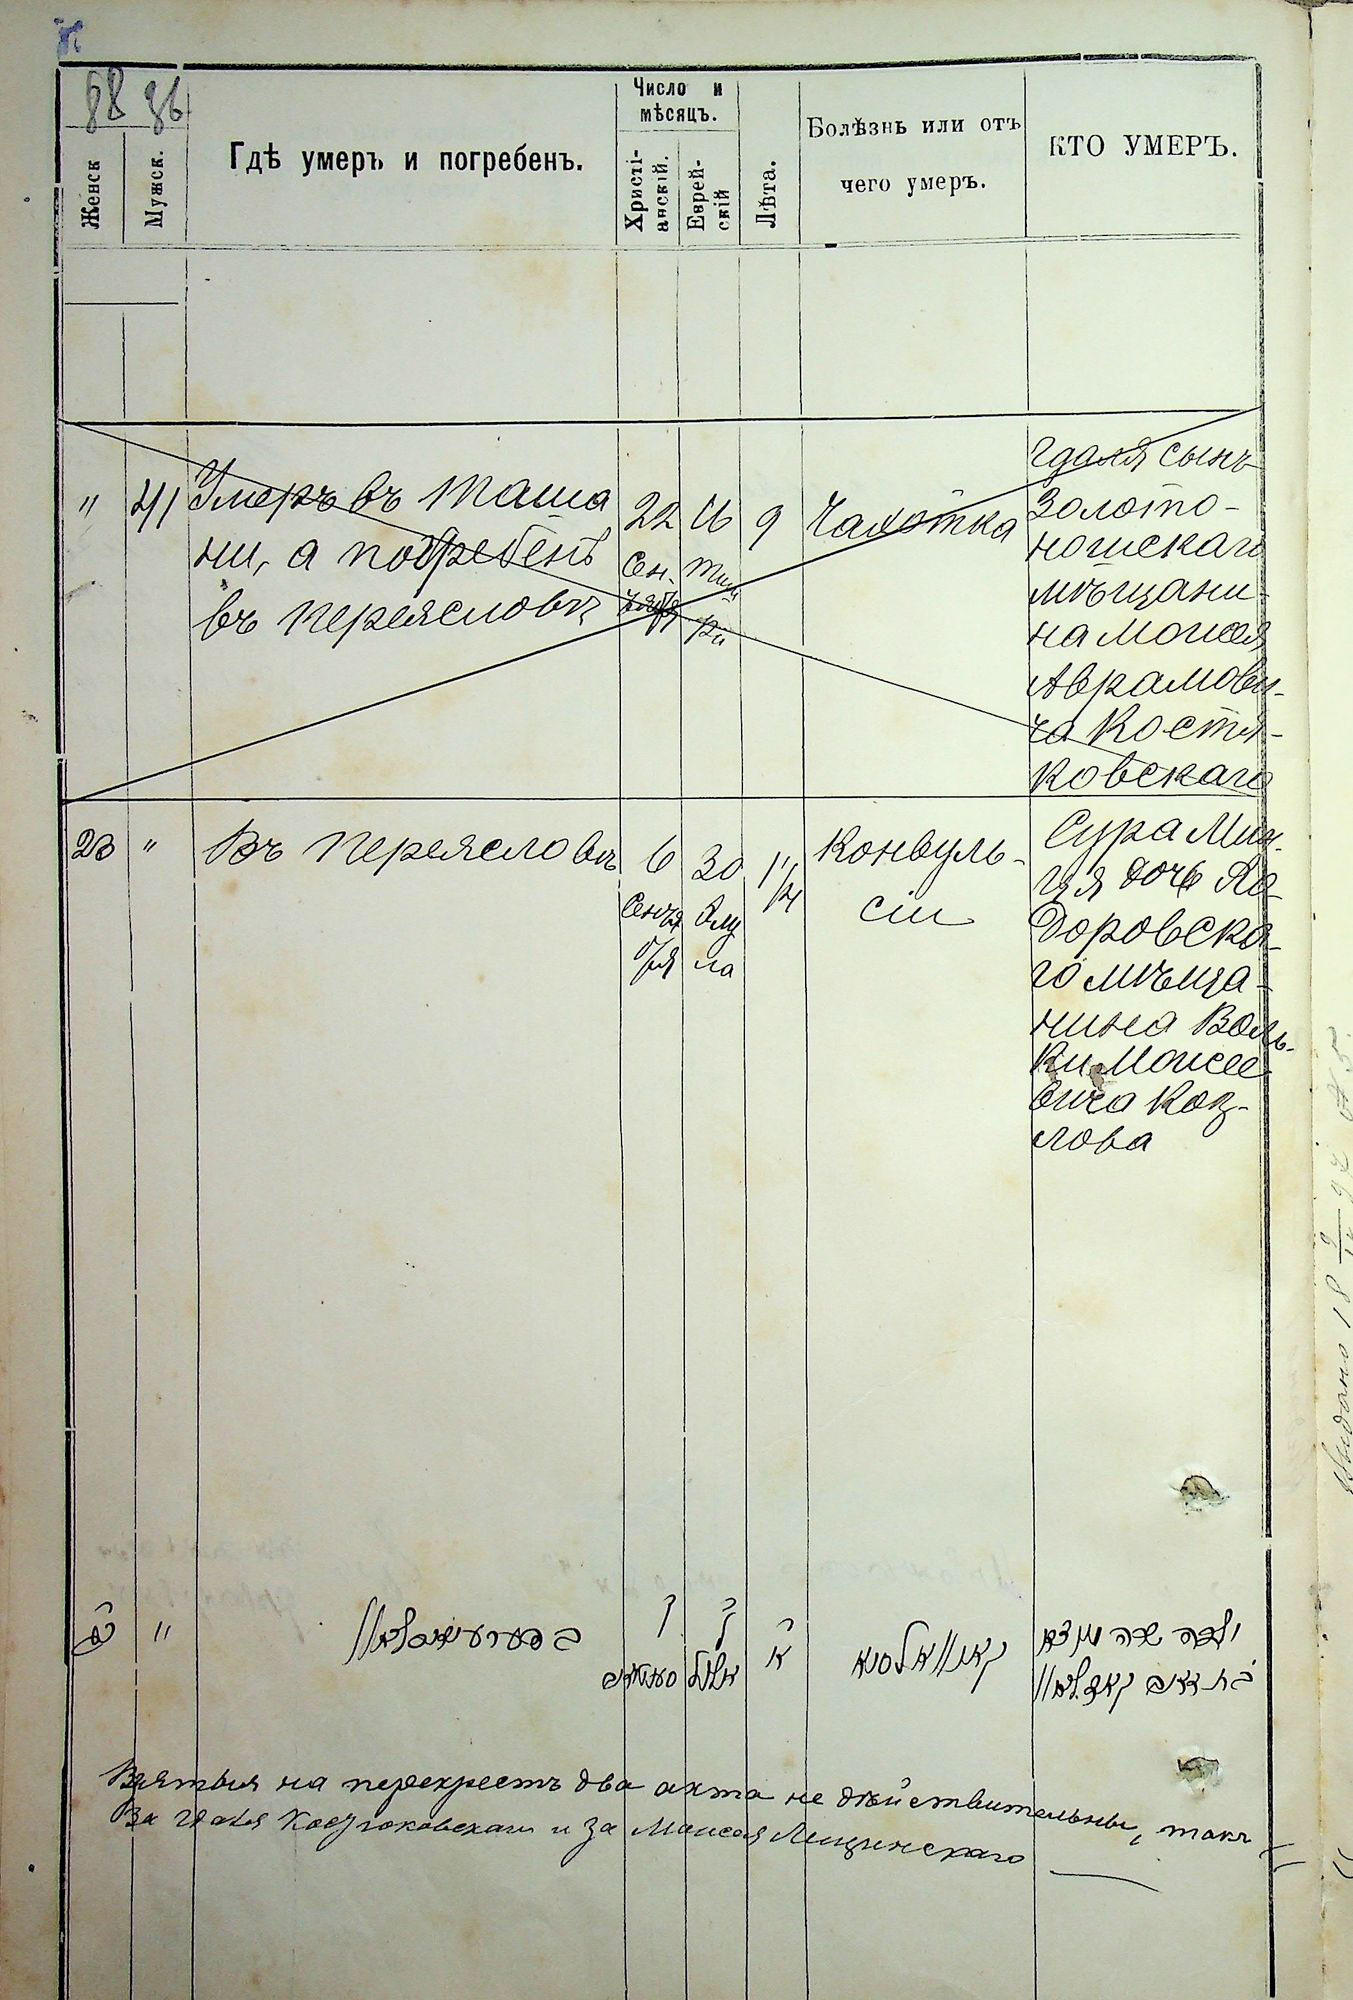 88 86
Женск
Мужск.
Гдѣ умеръ и погребенъ.
Число и
мѣсяцъ.
Христі-
анскій.
Еврей-
скій
Лѣта.
Болѣзнь или отъ
чего умеръ.
КТО УМЕРЪ.
" 41 Умеръ въ Таша
ни, а погребенъ
въ Переясловѣ
22
Сен-
тября
16
Тиш
ри
9
Чахотка
Гдаля сынъ
Золото-
ношскаго
мѣщани-
на Моисея
Аврамови-
ча Костя-
ковскаго
23 " Въ Переясловѣ
6
Сентя
бря
30
Элу
ла
1 1/4
Конвуль-
сіи
Сура Мин-
ця дочь
доровска-
го мѣща-
нина Воль-
ки Моисее
вича Коз-
лова
Взятыя на перекрестъ два акта не дѣйствительны, такъ
За Гдаля Костюковскаго и за Моисея Лещинскаго